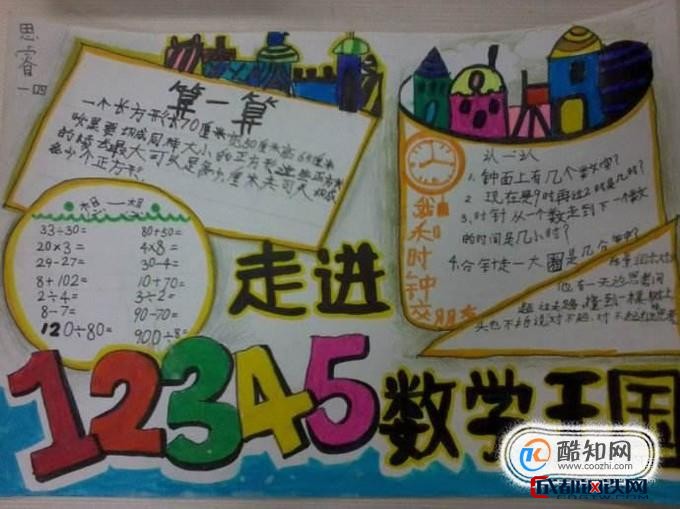 思睿
一四
算一算
一个长方形长70厘米宽50厘米高
要切成同样大小的正方形这些正方形
的 最大可以是多少厘米
多少个正方形
想一想
33÷30= 80+50=
20×3= 4×8=
29-27= 30-4=
8+102= 10+70=
2÷4= 3÷2=
8-7= 90-70=
120÷80= 900÷8=
认一认
1、钟面上有几个数字？
2、现在是9时再过2时是几时？
3、时针从一个数走到下一个数
的时间是几小时？
4、分针走一大圈是几分钟？
我和时钟交朋友
他有一天边思考问
题 撞到一棵树上
头也不 说对不起、对不起
走进
12345
数学王国
酷知网
www.coozhi.com
成都 铁网